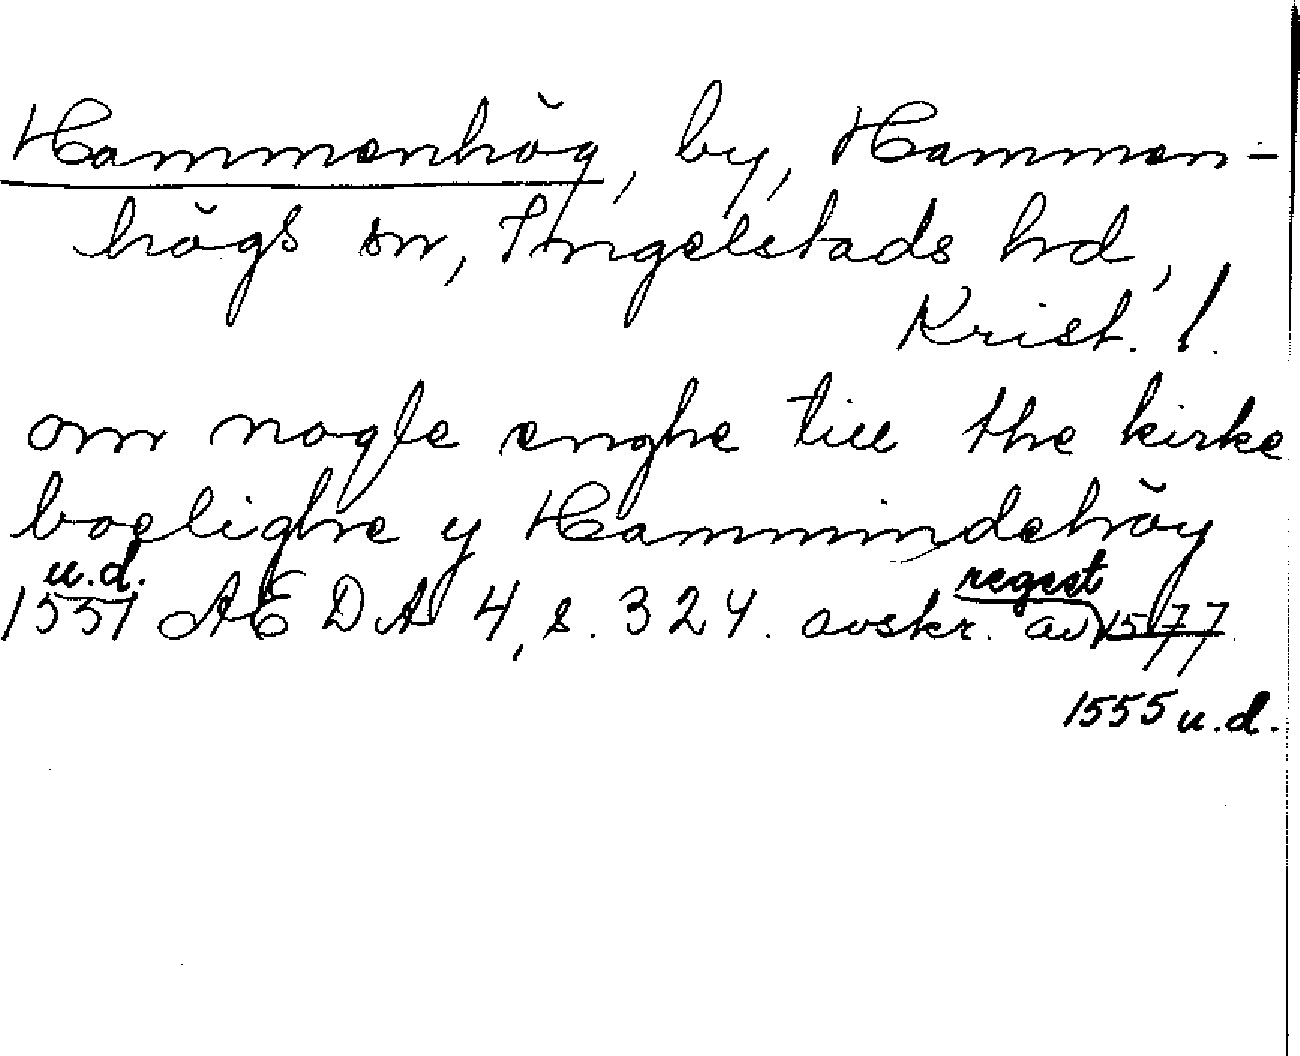 Hammenhög, by, Hammen-
högs sn, Ingelstads hd,
Krist. l.
om nogle enghe till the kirke
boelighe y Hammindehöy
u.d. regest
1551 AEDA 4, s. 324. avskr. av 1577
1555 u.d.